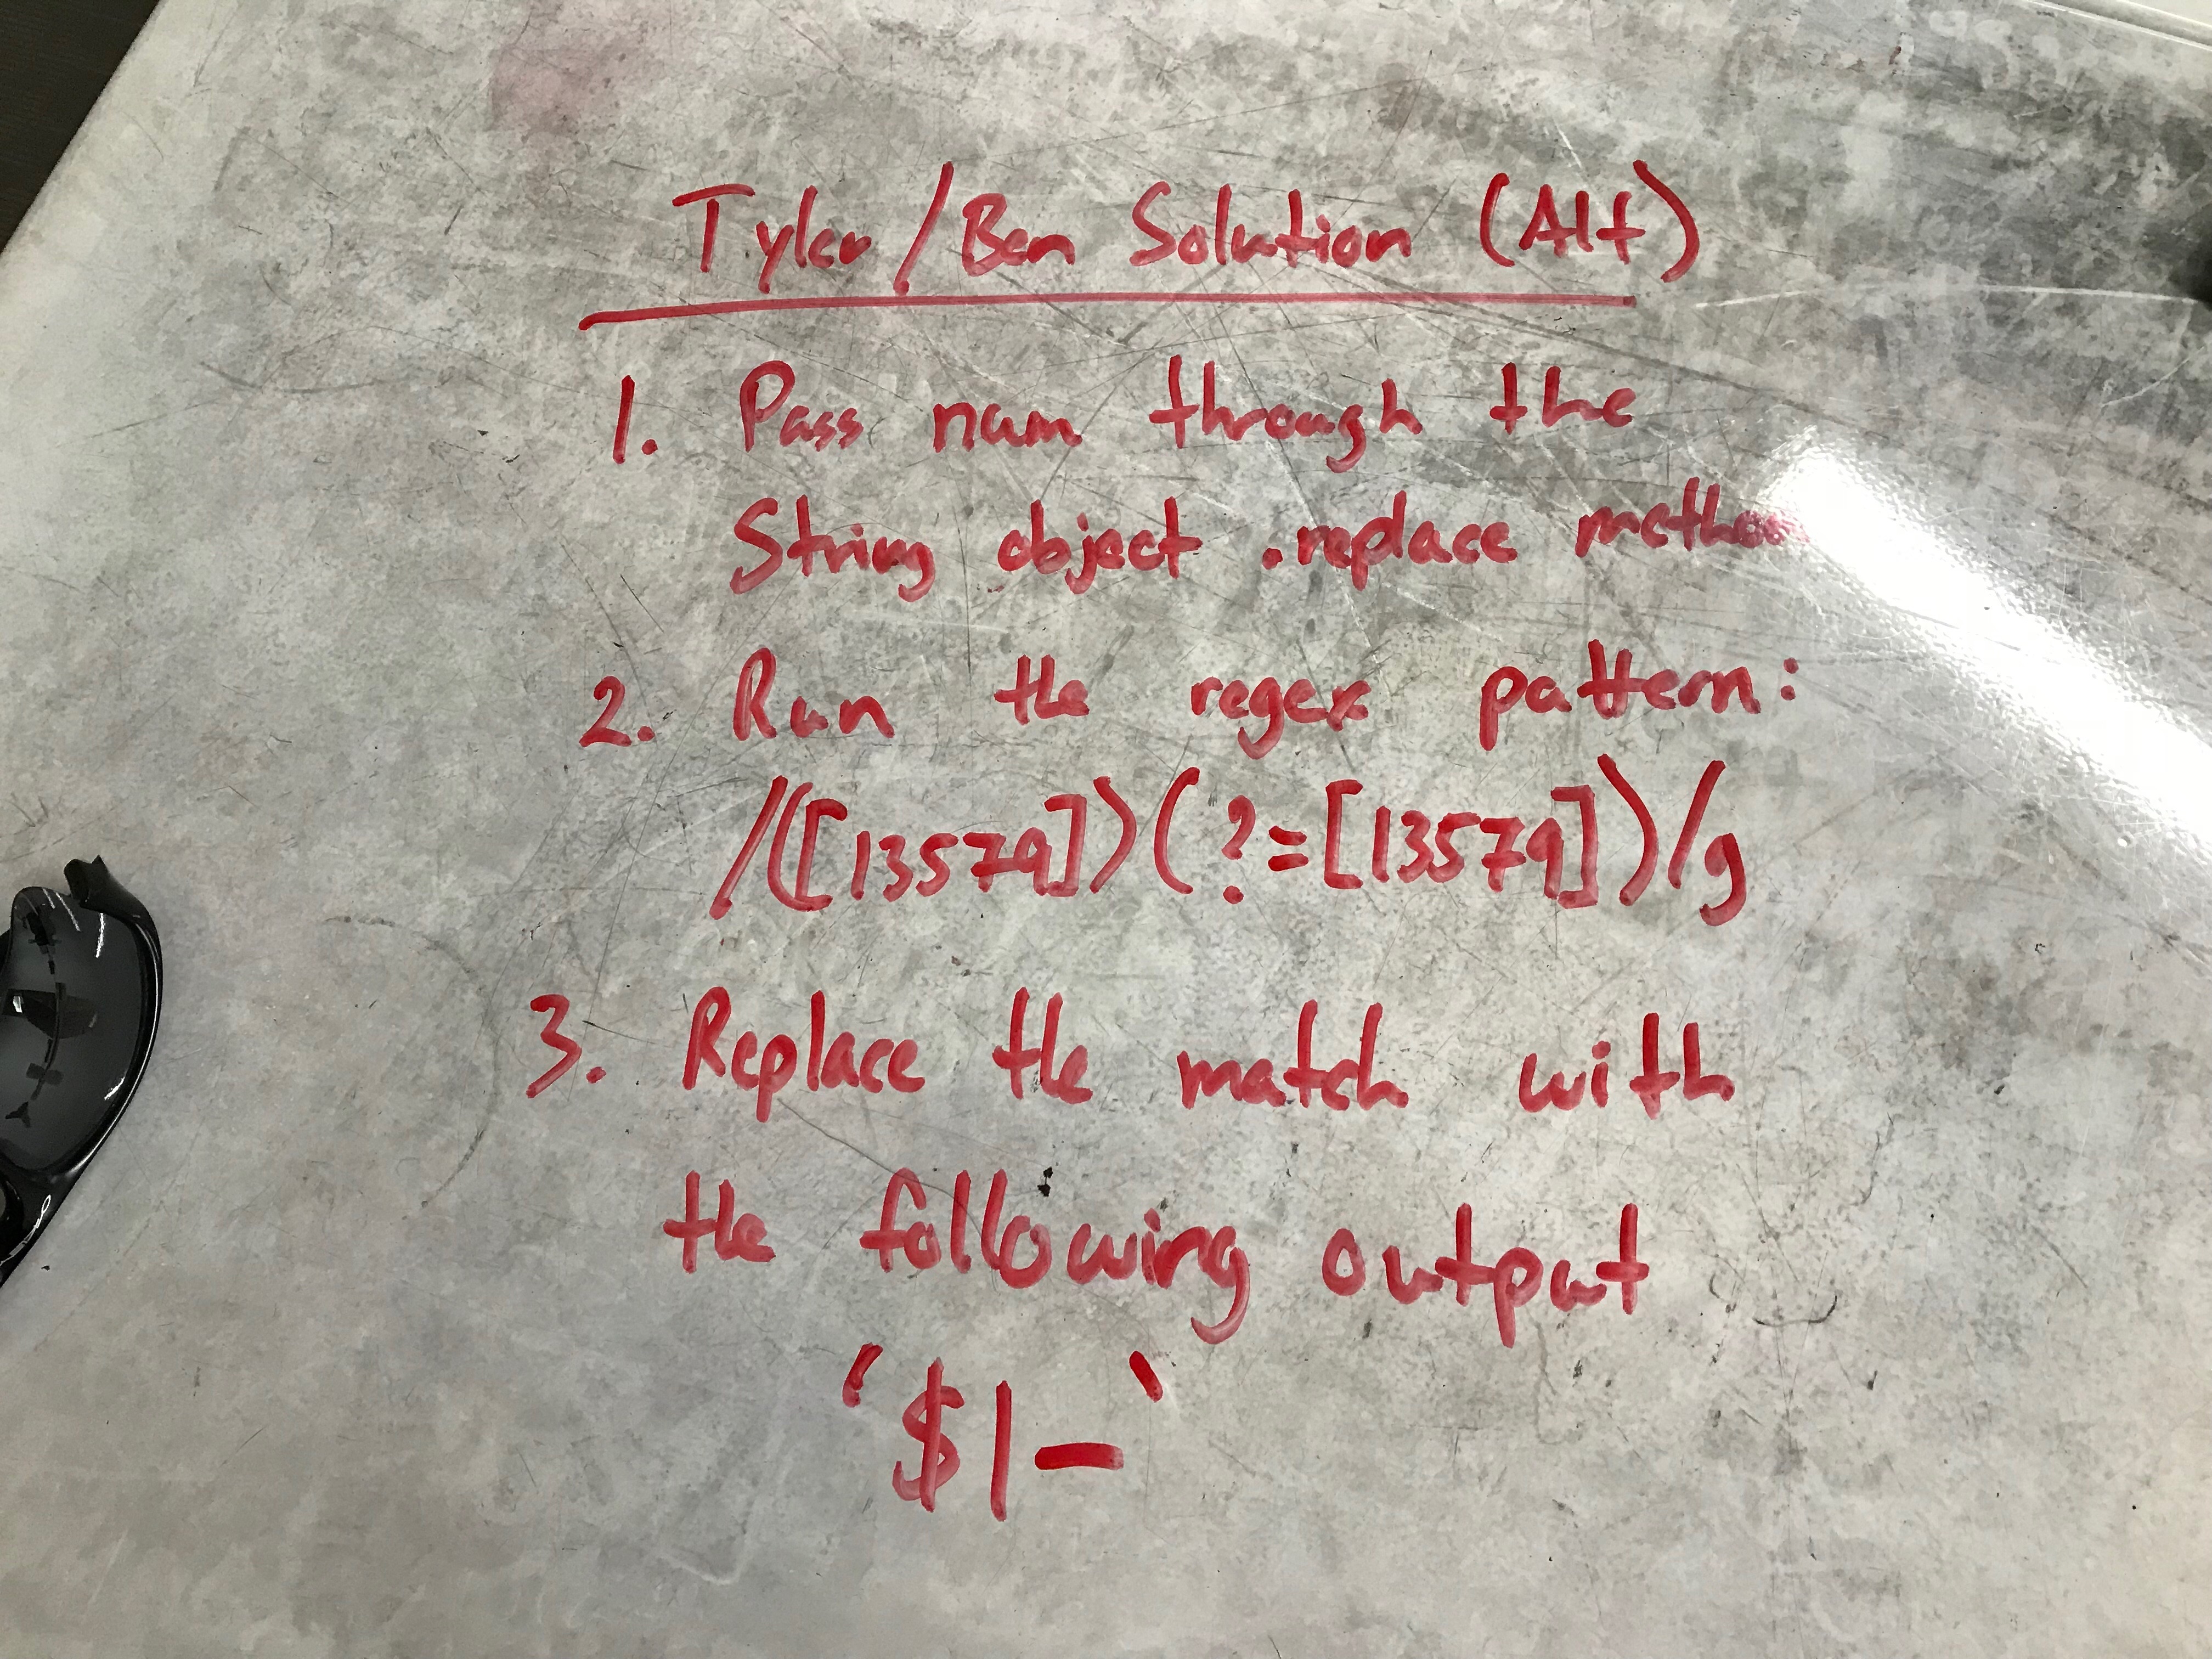 Tyler/Ben Solution (Alt)
1. Pass num through the
String object .replace method
2. Run the regex pattern:
/([13579])(?=[13579])/g
3. Replace the match with
the following output
'$1-'